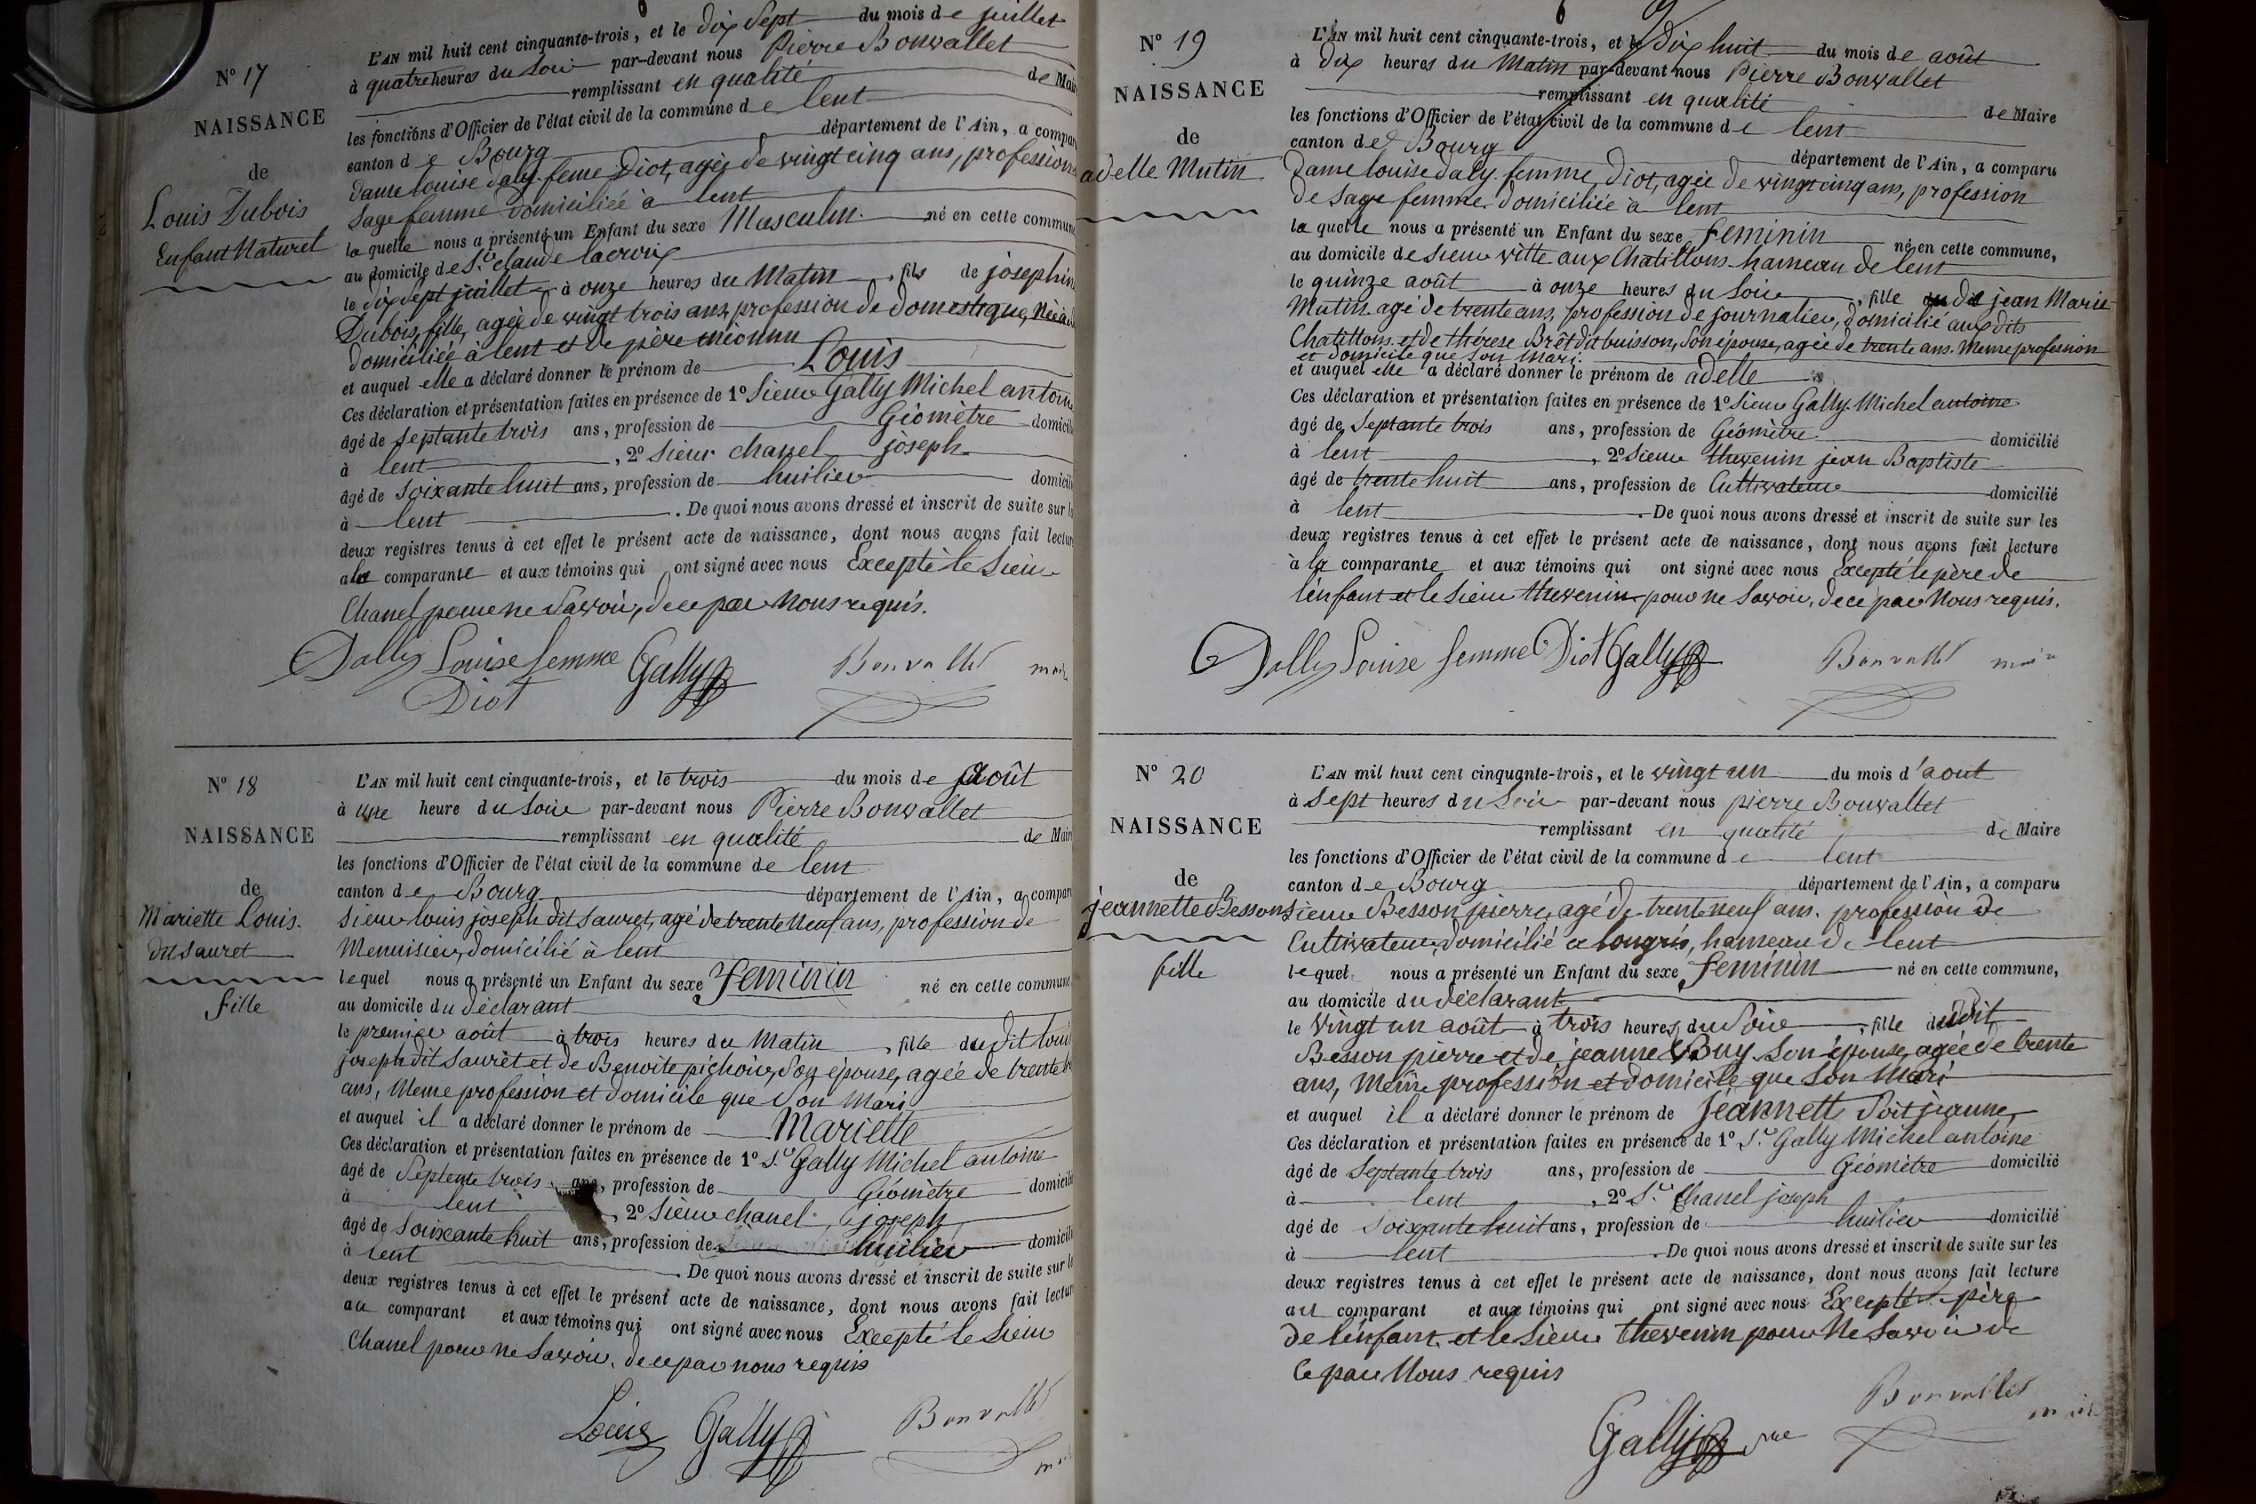 N° 17
NAISSANCE
de
Louis Dubois
Enfant Naturel
L'AN mil huit cent cinquante-trois, et le dix sept du mois de juillet
à quatre heures du soir par-devant nous Pierre Bonvallet
remplissant en qualité de Mai
les fonctions d'Officier de l'état civil de la commune de lent
canton de Bourg département de l'Ain, a compar
dame louise daly feme Diot, agée de vingt cinq ans, profession
Sage femme domiciliée à lent
la quelle nous a présenté un Enfant du sexe Masculin né en cette commune
au domicile de Sr. claude lacroix
le dix sept juillet à onze heures du Matin, fils de joséphin
Dubois, fille, agée de vingt trois ans, profession de domestique, Née à
domiciliée à lent et de père inconnu
et auquel elle a déclaré donner le prénom de Louis
Ces déclaration et présentation faites en présence de 1° Sieur Gally Michel antoin
âgé de septante trois ans, profession de Géomètre domicili
à lent, 2° Sieur chanel joseph
âgé de soixante huit ans, profession de huilier domicili
à lent. De quoi nous avons dressé et inscrit de suite sur le
deux registres tenus à cet effet le présent acte de naissance, dont nous avons fait lectur
a la comparante et aux témoins qui ont signé avec nous Excepté le Sieur
Chanel pour ne Savoir, de ce par Nous requis.
Dally Louise femme Diot Gally Bonvallet mair
N° 18
NAISSANCE
de
Mariette Louis.
dit sauret
fille
L'AN mil huit cent cinquante-trois, et le trois du mois de août
à une heure du soir par-devant nous Pierre Bonvallet
remplissant en qualité de Mair
les fonctions d'Officier de l'état civil de la commune de lent
canton de Bourg département de l'Ain, a compar
Sieur louis joseph dit sauret, agé de trente neuf ans, profession de
Menuisier, domicilié à lent
lequel nous a présenté un Enfant du sexe Feminin né en cette commune
au domicile du déclarant
le premier août à trois heures du Matin, fille du dit loui
joseph dit Saurèt et de Benoite pichoir, Son épouse, agée de trente
ans, Meme profession et domicile que Son Mari
et auquel il a déclaré donner le prénom de Mariette
Ces déclaration et présentation faites en présence de 1° Sr. Gally Michel antoine
âgé de Septente trois ans, profession de Géomètre domicili
à lent, 2° Sieur chanel joseph
âgé de soixante huit ans, profession de huilier domicili
à lent. De quoi nous avons dressé et inscrit de suite sur le
deux registres tenus à cet effet le présent acte de naissance, dont nous avons fait lectur
au comparant et aux témoins qui ont signé avec nous Excepté le Sieur
Chanel pour ne Savoir, de ce par nous requis
Louis Gally Bonvallet
N° 19
NAISSANCE
de
adelle Mutin
L'AN mil huit cent cinquante-trois, et le dix huit du mois de août
à dix heures du Matin par-devant nous Pierre Bonvallet
remplissant en qualité de Maire
les fonctions d'Officier de l'état civil de la commune de lent
canton de Bourg département de l'Ain, a comparu
Dame louise daly femme Diot, agée de vingt cinq ans, profession
de Sage femme, domiciliée à lent
la quelle nous a présenté un Enfant du sexe feminin né en cette commune,
au domicile de sieur vitte aux Chatillons hameau de lent
le quinze août à onze heures du Soir, fille du dit jean Marie
Mutin agé de trente ans, profession de journalier, domicilié aux dits
Chatillons et de thérese Brêt dit buisson, Son épouse, agée de trente ans. Meme profession
et domicile que Son mari.
et auquel elle a déclaré donner le prénom de adelle
Ces déclaration et présentation faites en présence de 1° Sieur Gally Michel antoine
âgé de Septante trois ans, profession de Géomètre domicilié
à lent, 2° Sieur thevenin jean Baptiste
âgé de trente huit ans, profession de Cultivateur domicilié
à lent. De quoi nous avons dressé et inscrit de suite sur les
deux registres tenus à cet effet le présent acte de naissance, dont nous avons fait lecture
à la comparante et aux témoins qui ont signé avec nous Excepté le père de
l'énfant et le Sieur thevenin pour ne Savoir, de ce par Nous requis.
Dally Louise femme Diot Gally Bonvallet
N° 20
NAISSANCE
de
jeannette Besson
fille
L'AN mil huit cent cinquante-trois, et le vingt un du mois d'aout
à Sept heures du Soir par-devant nous pierre Bonvallet
remplissant en qualité de Maire
les fonctions d'Officier de l'état civil de la commune de lent
canton de Bourg département de l'Ain, a comparu
Sieur Besson pierre, agé de trente neuf ans. profession de
Cultivateur, domicilié a longris, hameau de lent
lequel nous a présenté un Enfant du sexe feminin né en cette commune,
au domicile du déclarant
le Vingt un août à trois heures du Soir, fille dudit
Besson pierre et de jeanne Buy Son épouse, agée de trente
ans, Même profession et domicile que Son Mari
et auquel il a déclaré donner le prénom de Jéannette Soit jeanne
Ces déclaration et présentation faites en présence de 1° Sr. Gally Michel antoine
âgé de Septante trois ans, profession de Géomètre domicilié
à lent, 2° Sr. Chanel joseph
âgé de Soixante huit ans, profession de huilier domicilié
à lent. De quoi nous avons dressé et inscrit de suite sur les
deux registres tenus à cet effet le présent acte de naissance, dont nous avons fait lecture
au comparant et aux témoins qui ont signé avec nous Excepté le père
de l'énfant et le Sieur thevenin pour Ne Savoir de
Ce par Nous requis
Gally Bonvallet